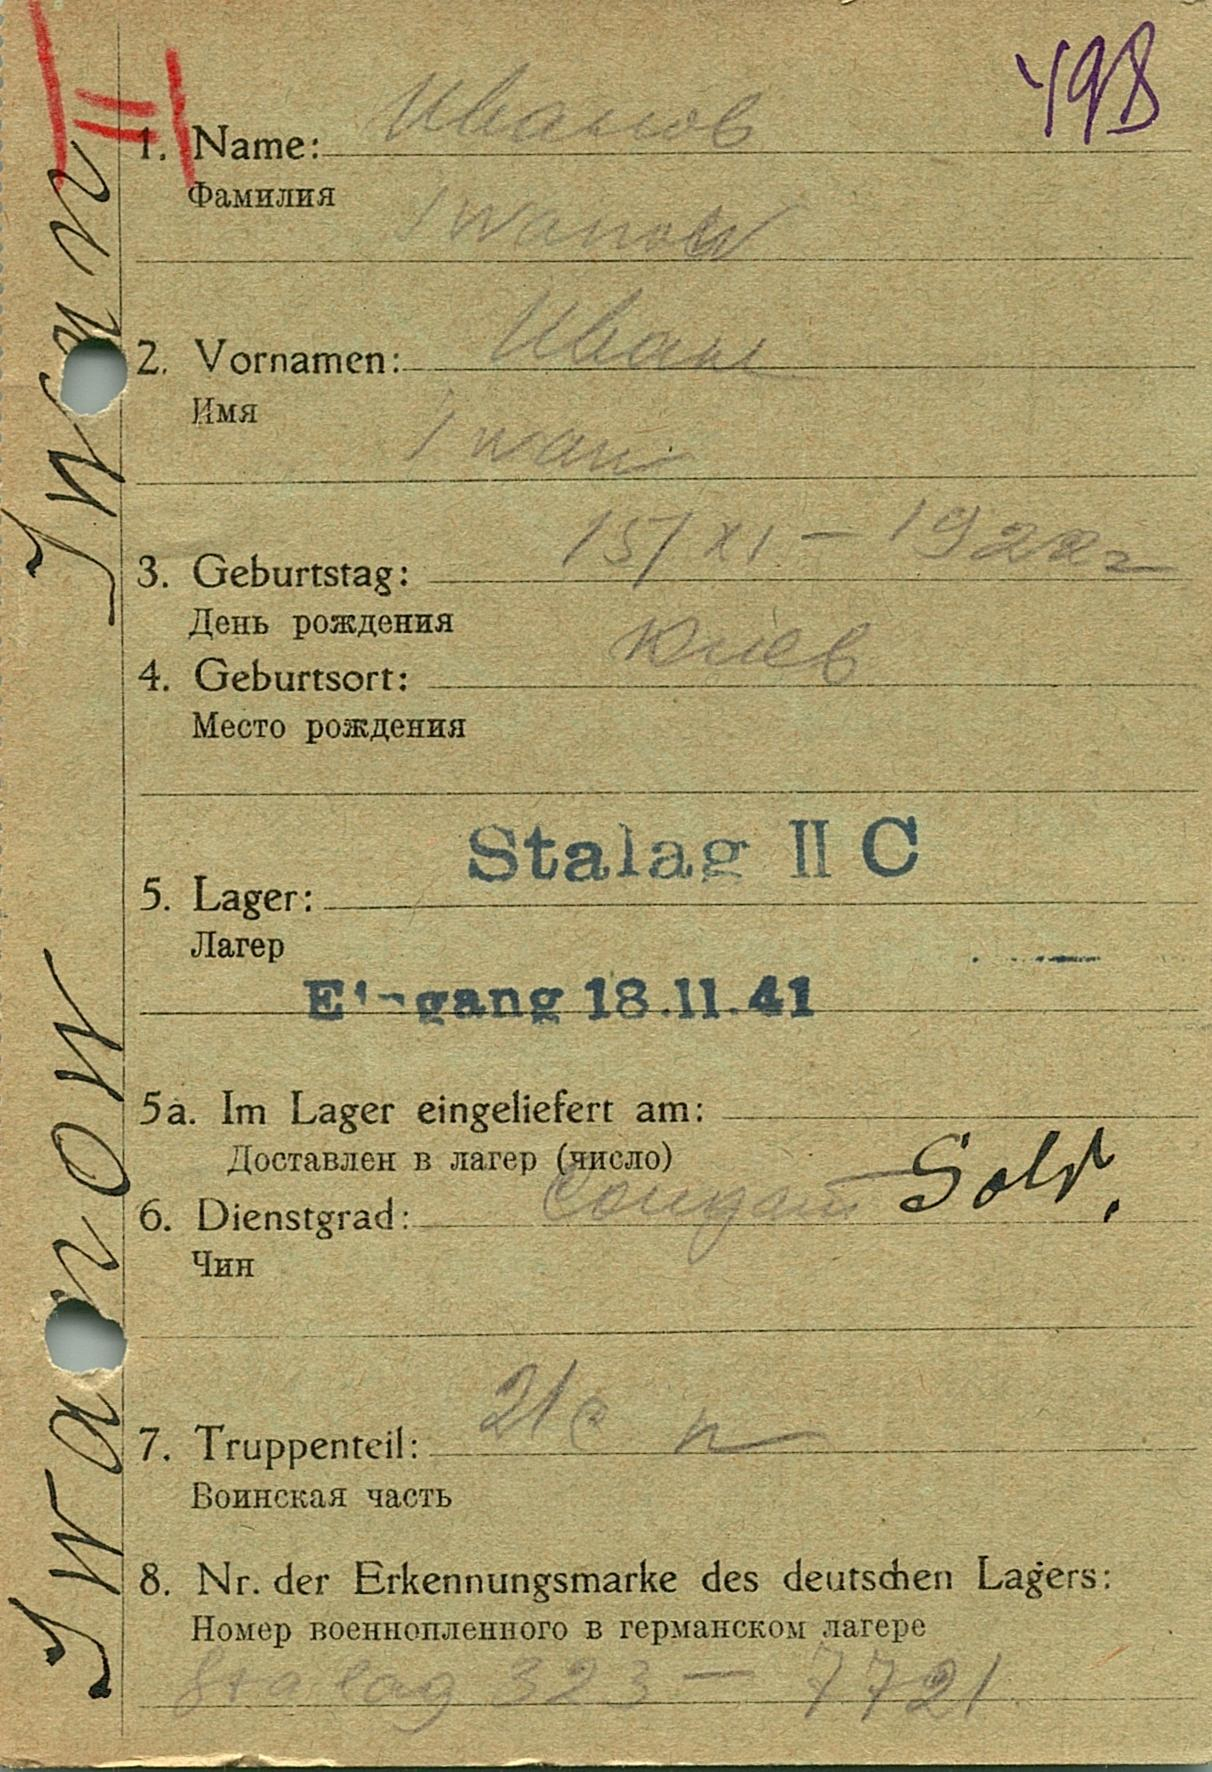 498
Iwanow Iwan
Иванов
1. Name:
Фамилия
Iwanow
Иван
2. Vornamen:
Имя
Iwan
15/XI – 1922г
3. Geburtstag:
День рождения
Киев
4. Geburtsort:
Место рождения
Stalag II C
5. Lager:
Лагер
Eingang 18.11.41
5a. Im Lager eingeliefert am:
Доставлен в лагер (число)
6. Dienstgrad: Солдат Sold.
Чин
21с п
7. Truppenteil:
Воинская часть
8. Nr. der Erkennungsmarke des deutschen Lagers:
Номер военнопленного в германском лагере
Stalag 323 – 7721